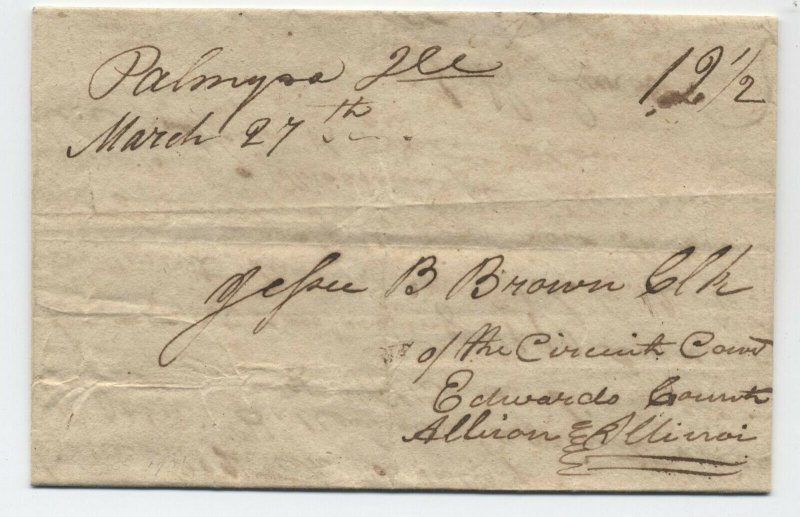 Palmyra Ill 12 1/2
March 27th
Jessee B Brown Clk
of the Circuit Court
Edwards County
Albion Illinoi